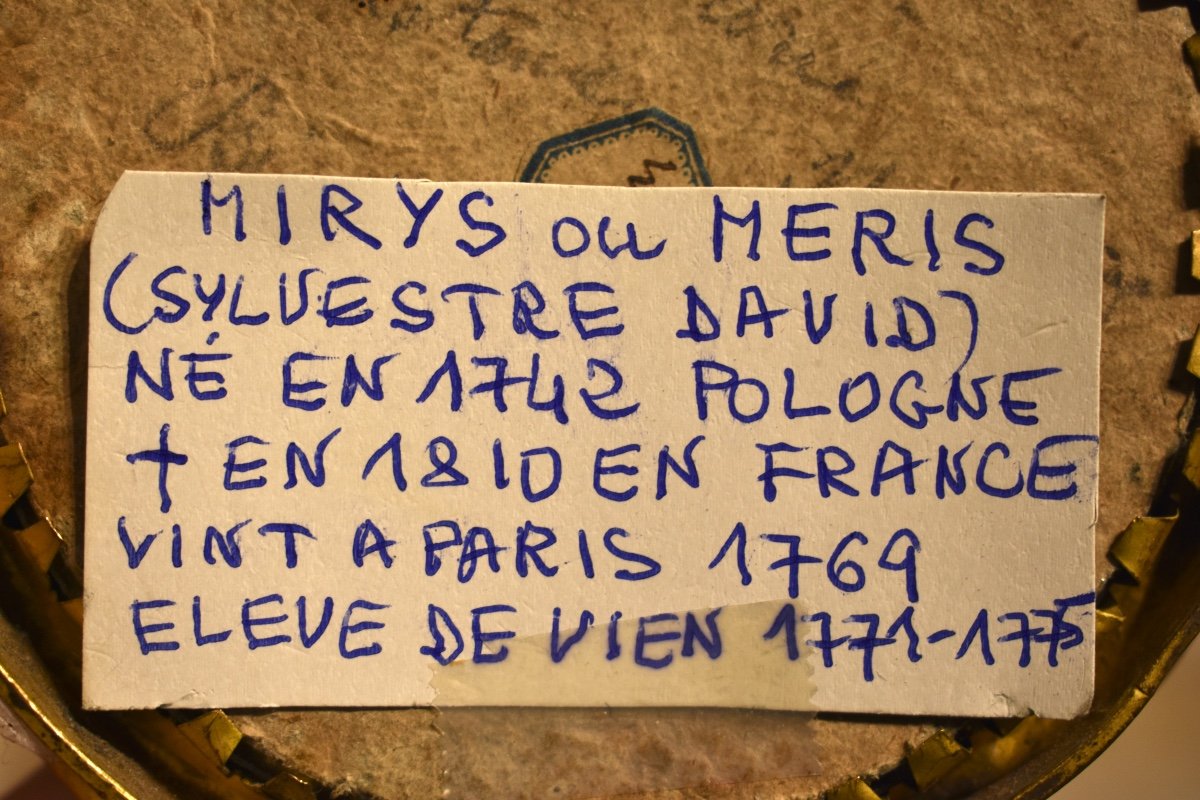 MIRYS ou MERIS
(SYLVESTRE DAVID)
NÉ EN 1742 POLOGNE
† EN 1810 EN FRANCE
VINT A PARIS 1769
ELEVE DE VIEN 1771-1775